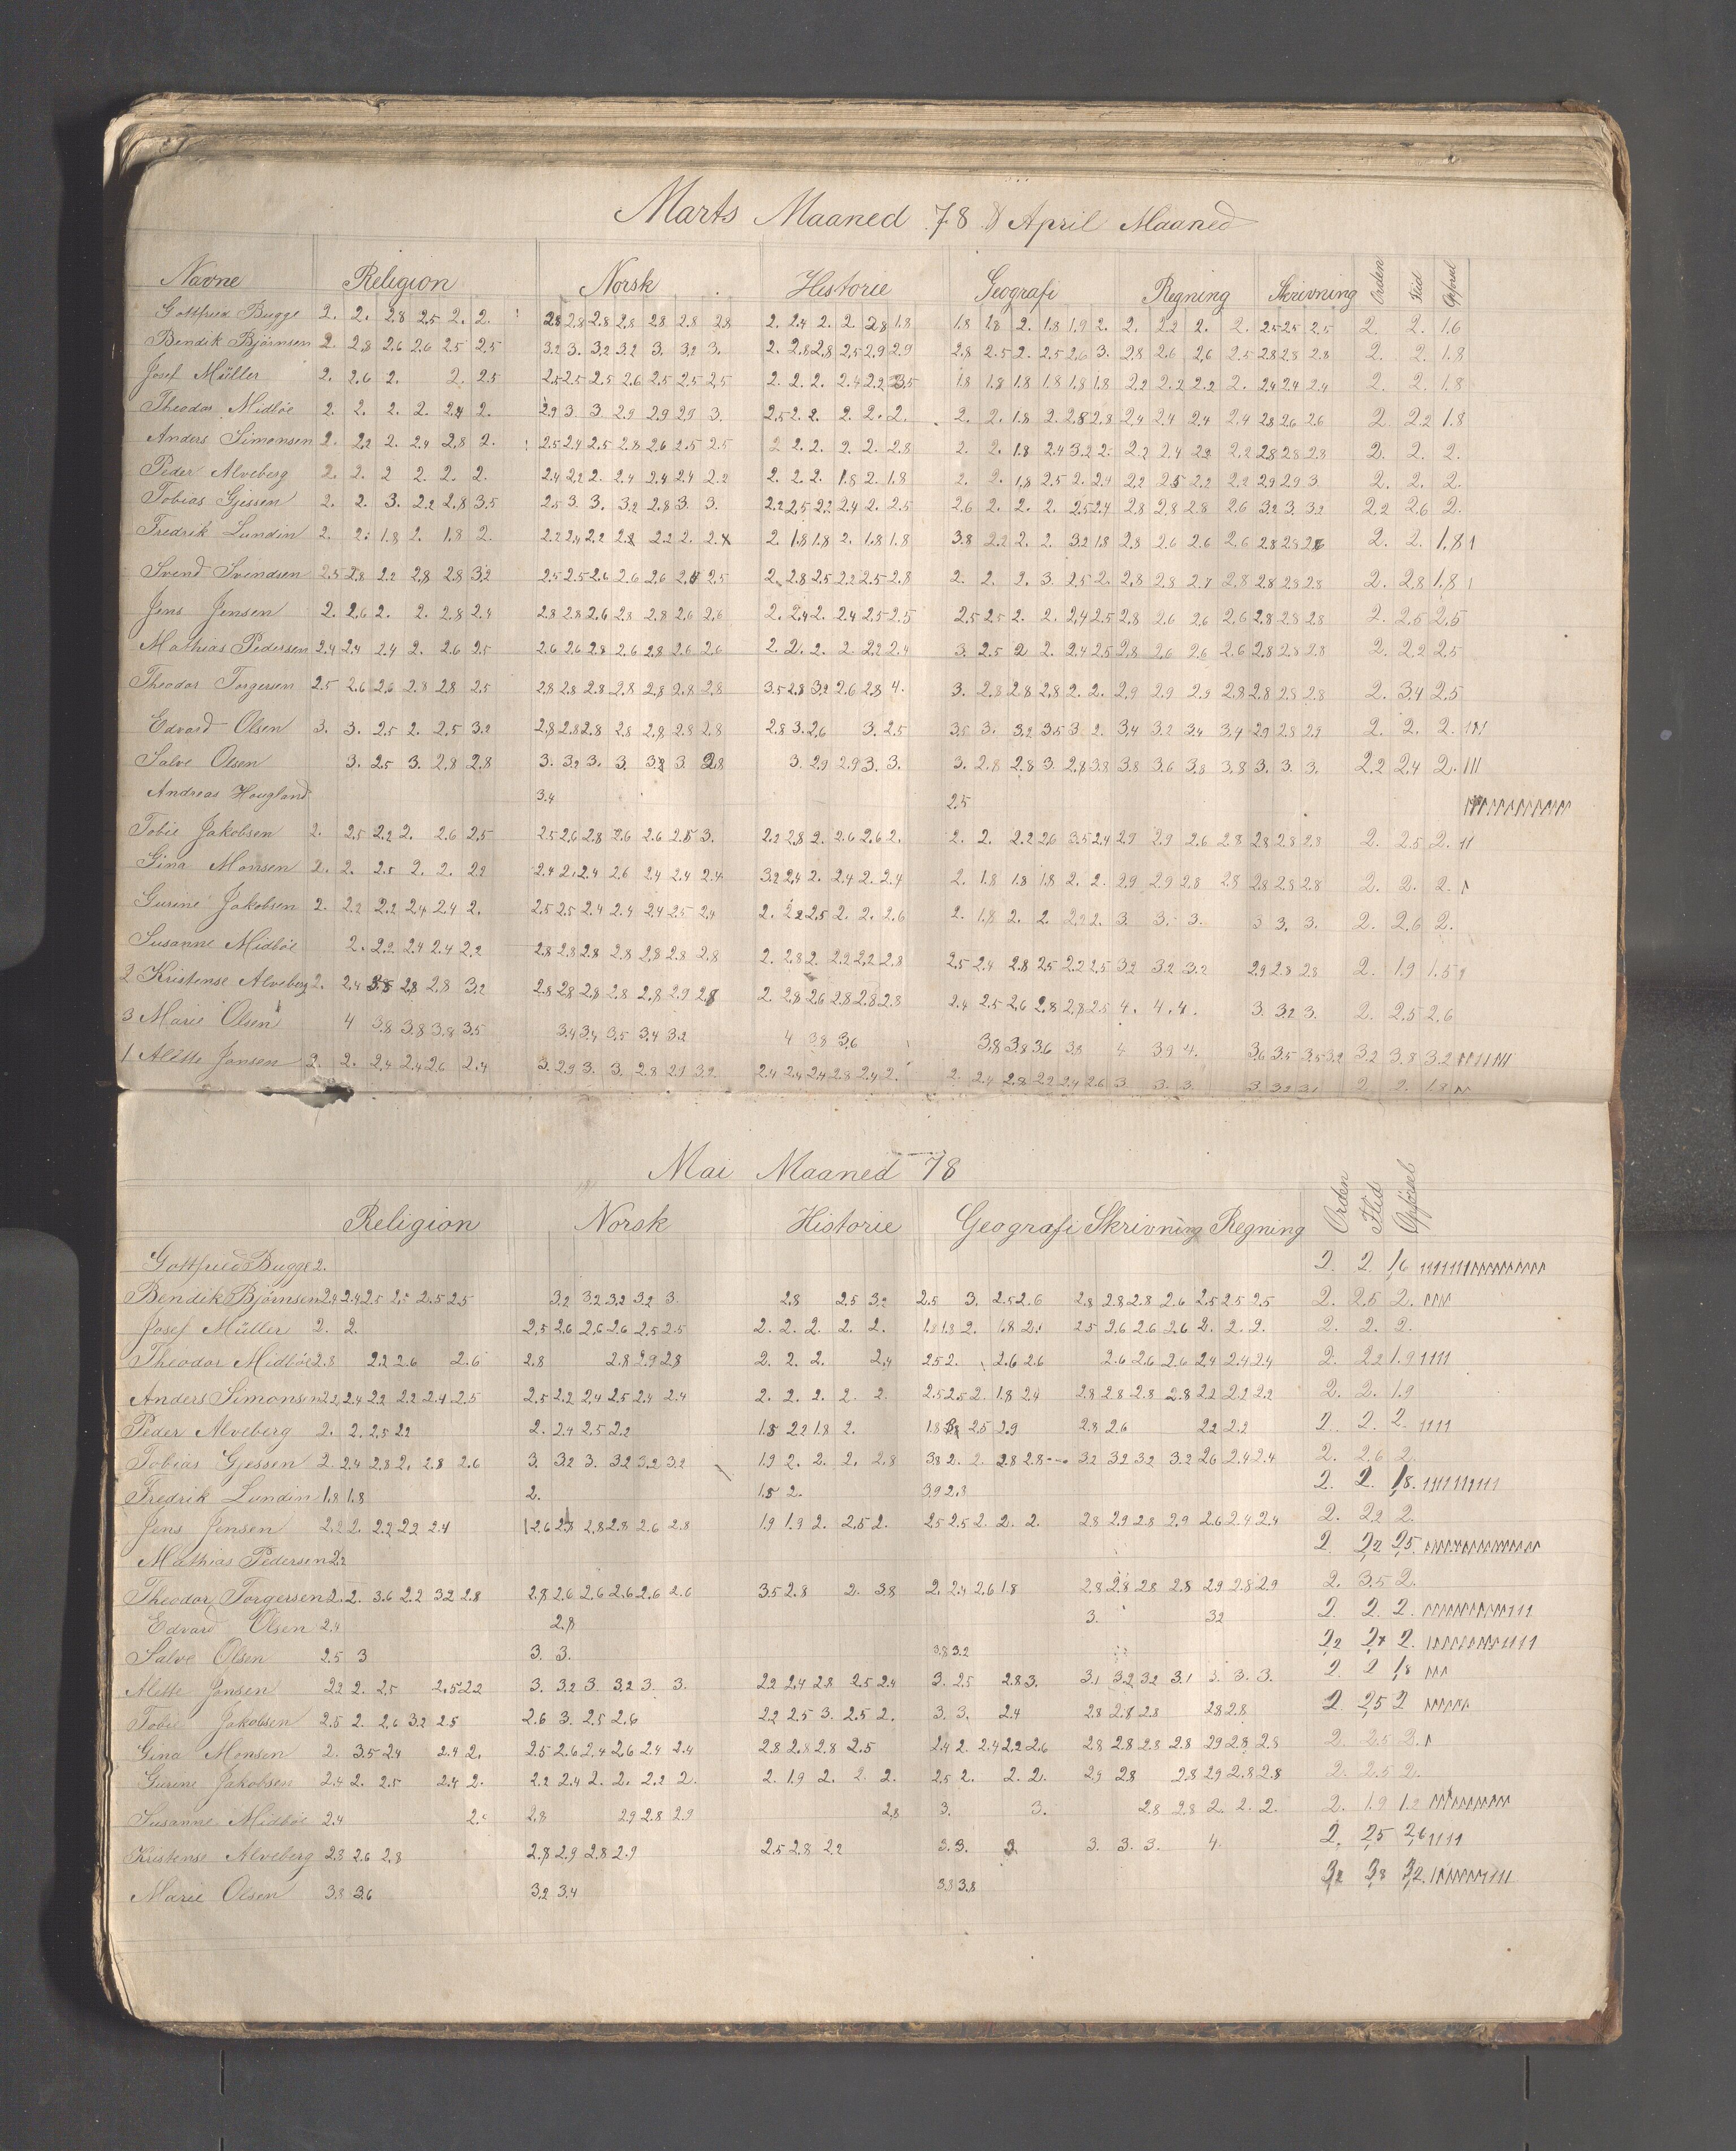 Marts Maaned 78 & April Maaned
Navne Religion Norsk Historie Geografi Regning Skrivning Orden Flid Opførsel
Gottfried Bugge 2. 2. 2.8 2.5 2. 2. 2.8 2.8 2.8 2.8 2.8 2.8 2.8 2. 2.4 2. 2. 2.8 1.8 1.8 1.8 2. 1.8 1.9 2. 2. 2.2 2. 2. 2.5 2.5 2.5 2. 2. 1.6
Bendik Bjørnsen 2. 2.8 2.6 2.6 2.5 2.5 3.2 3. 3.2 3.2 3. 3.2 3. 2. 2.8 2.8 2.5 2.9 2.9 2.8 2.5 2. 2.5 2.6 3. 2.8 2.6 2.6 2.5 2.8 2.8 2.8 2. 2. 1.8
Josef Müller 2. 2.6 2. 2. 2.5 2.5 2.5 2.5 2.6 2.5 2.5 2.5 2. 2. 2. 2.4 2.2 3.5 1.8 1.8 1.8 1.8 1.8 1.8 2.2 2.2 2.2 2. 2.4 2.4 2.4 2. 2. 1.8
Theodor Midbøe 2. 2. 2. 2. 2.4 2. 2.9 3. 3. 2.9 2.9 2.9 3. 2.5 2. 2. 2. 2. 2. 2. 2. 1.8 2. 2.8 2.8 2.4 2.4 2.4 2.4 2.8 2.6 2.6 2 2.2 1.8
Anders Simonsen 2. 2.2 2. 2.4 2.8 2. 2.5 2.4 2.5 2.8 2.6 2.5 2.5 2 2. 2. 2. 2. 2.8 2. 2. 1.8 2.4 3.2 2. 2.2 2.4 2.2 2.2 2.8 2.8 2.8 2. 2. 2.
Peder Alveberg 2. 2. 2 2. 2. 2. 2.4 2.2 2. 2.4 2.4 2.4 2.2 2. 2. 2. 1.8 2. 1.8 2. 2. 1.8 2.5 2. 2.4 2.2 2.5 2.2 2.2 2.9 2.9 3 2. 2. 2.
Tobias Gjessen 2. 2. 3. 2.2 2.8 3.5 2.5 3. 3. 3.2 2.8 3. 3. 2.2 2.5 2.2 2.4 2. 2.5 2.6 2. 2. 2. 2.5 2.4 2.8 2.8 2.8 2.6 3.2 3. 3.2 2.2 2.6 2.
Fredrik Lundin 2. 2. 1.8 2. 1.8 2. 2.2 2.4 2.2 2.2 2. 2. 1.8 1.8 2. 1.8 1.8 3.8 2.2 2. 2. 3.2 1.8 2.8 2.6 2.6 2.6 2.8 2.8 2. 2. 1.8
Svend Svendsen 2.5 2.8 2.2 2.8 2.8 3.2 2.5 2.5 2.6 2.6 2.6 2.5 2. 2.8 2.5 2.2 2.5 2.8 2. 2. 2. 3. 2.5 2. 2.8 2.8 2.7 2.8 2.8 2.8 2.8 2. 2.8 1.8
Jens Jensen 2. 2.6 2. 2. 2.8 2.4 2.8 2.8 2.6 2.8 2.8 2.6 2.6 2. 2.4 2. 2.4 2.5 2.5 2.5 2.5 2. 2. 2.4 2.5 2.8 2.6 2.6 2.6 2.8 2.8 2.8 2. 2.5 2.5
Mathias Pedersen 2.4 2.4 2.4 2. 2.6 2.5 2.6 2.6 2.8 2.6 2.8 2.6 2.6 2. 2. 2. 2. 2.2 2.4 3. 2.5 2 2. 2.4 2.5 2.8 2.6 2.6 2.6 2.8 2.8 2.8 2. 2.2 2.5
Theodor Torgersen 2.5 2.6 2.6 2.8 2.8 2.5 2.8 2.8 2.8 2.8 2.8 2.8 2.8 3.5 2.8 3.2 2.6 2.8 4. 3. 2.8 2.8 2.8 2. 2. 2.9 2.9 2.9 2.8 2.8 2.8 2.8 2. 3.4 2.5
Edvard Olsen 3. 3. 2.5 2. 2.5 3.2 2.8 2.8 2.8 2.8 2.8 2.8 2.8 2.8 3. 2.6 3. 2.5 3.5 3. 3.2 3.5 3. 2. 3.4 3.2 3.4 3.4 2.9 2.8 2.9 2. 2. 2.
Salve Olsen 3. 2.5 3. 2.8 2.8 3. 3.2 3. 3. 3 2.8 3. 2.9 2.9 3. 3. 3. 2.8 2.8 3. 2.8 3.8 3.8 3.6 3.8 3.8 3. 3. 3. 2.2 2.4 2.
Andreas Hougland 3.4 2.5
Tobie Jakobsen 2. 2.5 2.2 2. 2.6 2.5 2.5 2.6 2.8 2.6 2.6 2.8 3. 2.2 2.8 2. 2.6 2.6 2. 2. 2. 2.2 2.6 3.5 2.4 2.9 2.9 2.6 2.8 2.8 2.8 2.8 2. 2.5 2.
Gina Monsen 2. 2. 2.5 2. 2. 2.2 2.4 2. 2.4 2.6 2.4 2.4 2.4 3.2 2.4 2. 2.4 2. 2.4 2. 1.8 1.8 1.8 2. 2. 2.9 2.9 2.8 2.8 2.8 2.8 2.8 2. 2. 2.
Gurine Jakobsen 2. 2.2 2.2 2.4 2.4 2. 2.5 2.5 2.4 2.4 2.4 2.5 2.4 2. 2.2 2.5 2. 2. 2.6 2. 1.8 2. 2. 2.2 2. 3. 3. 3. 3 3. 3. 2. 2.6 2.
Susanne Midbøe 2. 2.2 2.4 2.4 2.2 2.8 2.8 2.8 2.8 2.8 2.8 2.8 2. 2.8 2. 2.2 2.2 2.8 2.5 2.4 2.8 2.5 2.2 2.5 3.2 3.2 3.2 2.9 2.8 2.8 2. 1.9 1.5
2 Kristense Alveberg 2. 2.4 3.5 2.8 2.8 3.2 2.8 2.8 2.8 2.8 2.8 2.9 2.8 2. 2.8 2.6 2.8 2.8 2.8 2.4 2.5 2.6 2.8 2.8 2.5 4. 4. 4. 3. 3.2 3. 2. 2.5 2.6
3 Marie Olsen 4 3.8 3.8 3.8 3.5 3.4 3.4 3.5 3.4 3.2 4 3.8 3.6 3.8 3.8 3.6 3.8 4 3.9 4. 3.6 3.5 3.5 3.2 3.2 3.8 3.2
1 Alette Jansen 2. 2. 2.4 2.4 2.6 2.4 3. 2.9 3. 3. 2.8 2.9 3.2 2.4 2.4 2.4 2.8 2.4 2. 2. 2.4 2.8 2.2 2.4 2.6 3. 3. 3. 3 3.2 3.1 2. 2. 1.8
Mai Maaned 78
Religion Norsk Historie Geografi Skrivning Regning Orden Flid Opførsel
Gottfried Bugge 2. 2. 2. 1.6
Bendik Bjørnsen 2.4 2.4 2.5 2.5 2.5 2.5 3.2 3.2 3.2 3.2 3. 2.8 2.5 3.2 2.5 3. 2.5 2.6 2.8 2.8 2.8 2.6 2.5 2.5 2.5 2. 2.5 2.
Josef Müller 2. 2. 2.5 2.6 2.6 2.6 2.5 2.5 2. 2. 2. 2. 2. 1.8 1.8 2. 1.8 2. 2.5 2.6 2.6 2.6 2. 2. 2. 2. 2. 2.
Theodor Midbøe 2.8 2.2 2.6 2.6 2.8 2.8 2.9 2.8 2. 2. 2. 2.4 2.5 2. 2.6 2.6 2.6 2.6 2.6 2.4 2.4 2.4 2. 2.2 1.9
Anders Simonsen 2.2 2.4 2.2 2.2 2.4 2.5 2.5 2.2 2.4 2.5 2.4 2.4 2. 2. 2. 2. 2. 2.5 2.5 2. 1.8 2.4 2.8 2.8 2.8 2.8 2.2 2.2 2.2 2. 2. 1.9
Peder Alveberg 2. 2. 2.5 2.2 2. 2.4 2.5 2.2 1.8 2.2 1.8 2. 1.8 2.5 2.9 2.8 2.6 2.2 2.2 2. 2. 2.
Tobias Gjessen 2. 2.4 2.8 2. 2.8 2.6 3. 3.2 3. 3.2 3.2 3.2 1.9 2. 2. 2. 2.8 3.8 2. 2. 2.8 2.8 3.2 3.2 3.2 3.2 2.6 2.4 2.4 2. 2.6 2.
Fredrik Lundin 1.8 1.8 2. 1.5 2. 3.9 2.8 2. 2. 1.8
Jens Jensen 2.2 2. 2.2 2.2 2.4 2.6 2.8 2.8 2.8 2.6 2.8 1.9 1.9 2. 2.5 2. 2.5 2.5 2. 2. 2. 2.8 2.9 2.8 2.9 2.6 2.4 2.4 2. 2.2 2.
Mathias Pedersen 2.2 2 2.2 2.5
Theodor Torgersen 2. 2. 3.6 2.2 3.2 2.8 2.8 2.6 2.6 2.6 2.6 2.6 3.5 2.8 2. 3.8 2. 2.4 2.6 1.8 2.8 2.8 2.8 2.8 2.9 2.8 2.9 2. 3.5 2.
Edvard Olsen 2.4 2.8 3. 3.2 2. 2. 2.
Salve Olsen 2.5 3 3. 3. 3.8 3.2 2.2 2.4 2.
Alette Jansen 2.2 2. 2.5 2.5 2.2 3. 3.2 3. 3.2 3. 3. 2.2 2.4 2.8 2.5 2.4 3. 2.5 2.8 3. 3.1 3.2 3.2 3.1 3. 3. 3. 2. 2 1.8
Tobie Jakobsen 2.5 2. 2.6 3.2 2.5 2.6 3. 2.5 2.6 2.2 2.5 3. 2.5 2. 3. 3. 2.4 2.8 2.8 2.8 2.8 2.8 2 2.5 2
Gina Monsen 2. 3.5 2.4 2.4 2. 2.5 2.6 2.4 2.6 2.4 2.4 2.8 2.8 2.8 2.5 2.4 2. 2.4 2.2 2.6 2.8 2.8 2.8 2.8 2.9 2.8 2.8 2. 2.5 2.
Gurine Jakobsen 2.4 2. 2.5 2.4 2. 2.2 2.4 2. 2. 2.2 2. 2. 1.9 2. 2. 2. 2.5 2. 2. 2. 2.9 2.8 2.8 2.9 2.8 2.8 2. 2.5 2.
Susanne Midbøe 2.4 2. 2.8 2.9 2.8 2.9 2.8 3. 3. 2.8 2.8 2. 2. 2. 2. 1.9 1.2
Kristense Alveberg 2.8 2.6 2.8 2.8 2.9 2.8 2.9 2.5 2.8 2.2 3. 3. 3. 3. 3. 3. 4. 2. 2.5 2.6
Marie Olsen 3.8 3.6 3.2 3.4 3.8 3.8 3.2 3.8 3.2